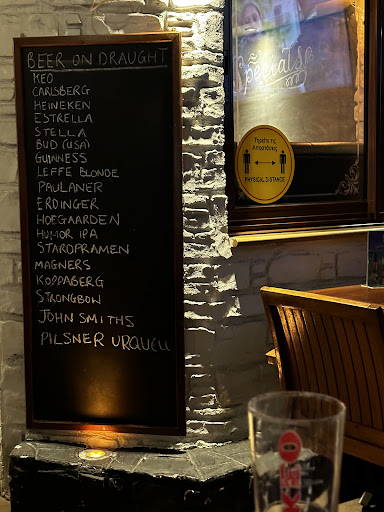 BEER ON DRAUGHT
KEO
CARLSBERG
HEINEKEN
ESTRELLA
STELLA
BUD (USA)
GUINNESS
LEFFE BLONDE
PAULANER
ERDINGER
HOEGAARDEN
HUMOR IPA
STAROPRAMEN
MAGNERS
KOPPABERG
STRONGBOW
JOHN SMITHS
PILSNER URQUELL
Specials
Τηρείτε τις
Αποστάσεις
PHYSICAL DISTANCE